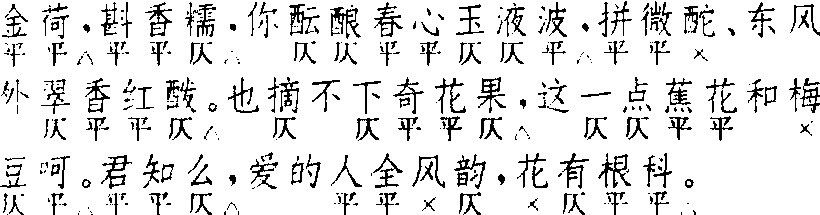 金荷，斟香糯，你酝酿春心玉液波，拼微酡、东风
平平△平平仄△仄仄平平仄仄平△平平×
外翠香红酦。也摘不下奇花果，这一点蕉花和梅
仄平平仄△仄仄平平仄△仄仄平平×
豆呵。君知么，爱的人全风韵，花有根科。
仄平△平平仄△平平×仄×仄平平△